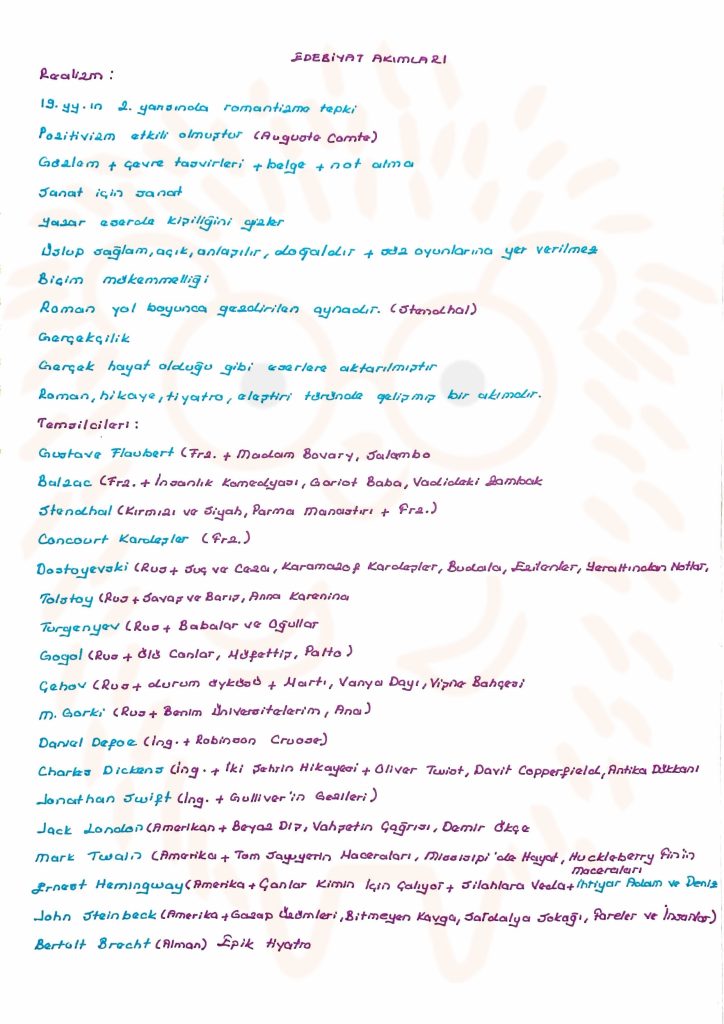 EDEBİYAT AKIMLARI
Realizm :
19. yy. ın 2. yarısında romantizme tepki
Pozitivizm etkili olmuştur (Auguste Comte)
Gözlem + çevre tasvirleri + belge + not alma
Sanat için sanat
Yazar eserde kişiliğini gizler
Üslup sağlam, açık, anlaşılır, doğaldır + söz oyunlarına yer verilmez
Biçim mükemmelliği
Roman yol boyunca gezdirilen aynadır. (Stendhal)
Gerçekçilik
Gerçek hayat olduğu gibi eserlere aktarılmıştır
Roman, hikaye, tiyatro, eleştiri türünde gelişmiş bir akımdır.
Temsilcileri :
Gustave Flaubert (Frz. + Madam Bovary, Salambo
Balzac (Frz. + İnsanlık Komedyası, Goriot Baba, Vadideki Zambak
Stendhal (Kırmızı ve Siyah, Parma Manastırı + Frz.)
Concourt Kardeşler (Frz.)
Dostoyevski (Rus + Suç ve Ceza, Karamazof Kardeşler, Budala, Ezilenler, Yeraltından Notlar,
Tolstoy (Rus + Savaş ve Barış, Anna Karenina
Turgenyev (Rus + Babalar ve Oğullar
Gogol (Rus + Ölü Canlar, Müfettiş, Palto)
Çehov (Rus + durum öyküsü + Martı, Vanya Dayı, Vişne Bahçesi
M. Gorki (Rus + Benim Üniversitelerim, Ana)
Daniel Defoe (İng. + Robinson Cruose)
Charles Dickens (İng. + İki Şehrin Hikayesi + Oliver Twist, Davit Copperfield, Antika Dükkanı
Jonathan Swift (İng. + Gulliver'in Gezileri)
Jack London (Amerikan + Beyaz Diş, Vahşetin Çağrısı, Demir Ökçe
Mark Twain (Amerika + Tom Sawyerin Maceraları, Missisipi'de Hayat, Huckleberry Fin'in
maceraları
Ernest Hemingway (Amerika + Çanlar Kimin İçin Çalıyor + Silahlara Veda + İhtiyar Adam ve Deniz
John Steinbeck (Amerika + Gazap Üzümleri, Bitmeyen Kavga, Sardalya Sokağı, Fareler ve İnsanlar)
Bertolt Brecht (Alman) Epik tiyatro